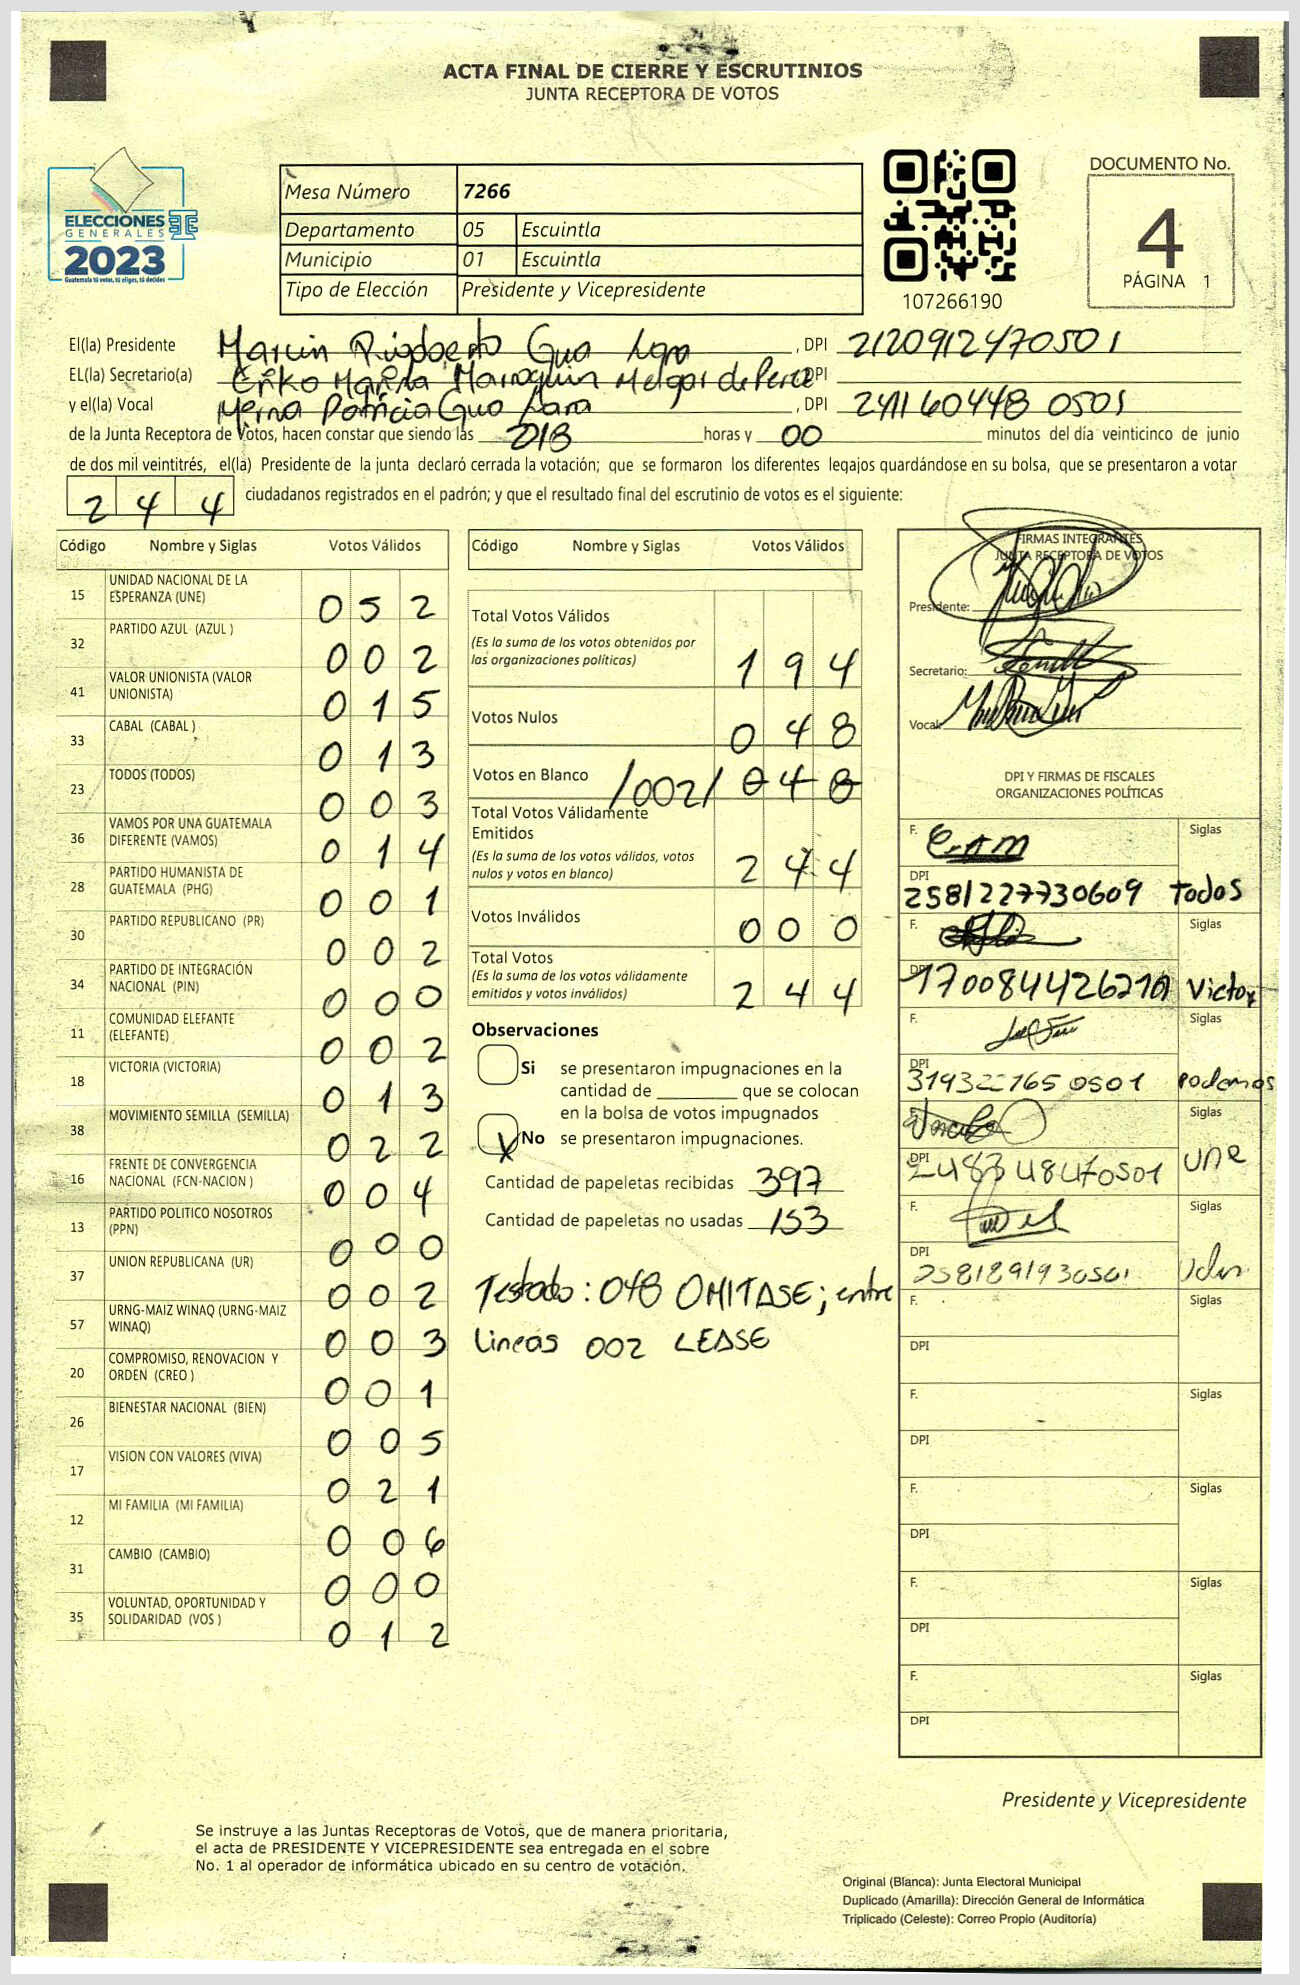 ACTA FINAL DE CIERRE Y ESCRUTINIOS
JUNTA RECEPTORA DE VOTOS
ELECCIONES
GENERALES
2023
Guatemala tú votas, tú eliges, tú decides
Mesa Número 7266
Departamento 05 Escuintla
Municipio 01 Escuintla
Tipo de Elección Presidente y Vicepresidente
107266190
DOCUMENTO No.
4
PÁGINA 1
El(la) Presidente , DPI 2120912470501
EL(la) Secretario(a) Marroquin Melgar de Perez DPI
y el(la) Vocal Mirna Patricia Guo Lara , DPI 2411604480501
de la Junta Receptora de Votos, hacen constar que siendo las horas y 00 minutos del día veinticinco de junio
de dos mil veintitrés, el(la) Presidente de la junta declaró cerrada la votación; que se formaron los diferentes legajos guardándose en su bolsa, que se presentaron a votar
2 4 4 ciudadanos registrados en el padrón; y que el resultado final del escrutinio de votos es el siguiente:
Código Nombre y Siglas Votos Válidos
15 UNIDAD NACIONAL DE LA ESPERANZA (UNE) 0 5 2
32 PARTIDO AZUL (AZUL ) 0 0 2
41 VALOR UNIONISTA (VALOR UNIONISTA) 0 1 5
33 CABAL (CABAL ) 0 1 3
23 TODOS (TODOS) 0 0 3
36 VAMOS POR UNA GUATEMALA DIFERENTE (VAMOS) 0 1 4
28 PARTIDO HUMANISTA DE GUATEMALA (PHG) 0 0 1
30 PARTIDO REPUBLICANO (PR) 0 0 2
34 PARTIDO DE INTEGRACIÓN NACIONAL (PIN) 0 0 0
11 COMUNIDAD ELEFANTE (ELEFANTE) 0 0 2
18 VICTORIA (VICTORIA) 0 1 3
38 MOVIMIENTO SEMILLA (SEMILLA) 0 2 2
16 FRENTE DE CONVERGENCIA NACIONAL (FCN-NACION ) 0 0 4
13 PARTIDO POLITICO NOSOTROS (PPN) 0 0 0
37 UNION REPUBLICANA (UR) 0 0 2
57 URNG-MAIZ WINAQ (URNG-MAIZ WINAQ) 0 0 3
20 COMPROMISO, RENOVACION Y ORDEN (CREO ) 0 0 1
26 BIENESTAR NACIONAL (BIEN) 0 0 5
17 VISION CON VALORES (VIVA) 0 2 1
12 MI FAMILIA (MI FAMILIA) 0 0 6
31 CAMBIO (CAMBIO) 0 0 0
35 VOLUNTAD, OPORTUNIDAD Y SOLIDARIDAD (VOS ) 0 1 2
Código Nombre y Siglas Votos Válidos
Total Votos Válidos
(Es la suma de los votos obtenidos por
las organizaciones políticas) 1 9 4
Votos Nulos 0 4 8
Votos en Blanco /002/ 0 4 8
Total Votos Válidamente
Emitidos
(Es la suma de los votos válidos, votos
nulos y votos en blanco) 2 4 4
Votos Inválidos 0 0 0
Total Votos
(Es la suma de los votos válidamente
emitidos y votos inválidos) 2 4 4
Observaciones
Si se presentaron impugnaciones en la
cantidad de que se colocan
en la bolsa de votos impugnados
X No se presentaron impugnaciones.
Cantidad de papeletas recibidas 397
Cantidad de papeletas no usadas 153
Testado: 048 OMITASE; entre
Lineas 002 LEASE
FIRMAS INTEGRANTES
JUNTA RECEPTORA DE VOTOS
Presidente:
Secretario:
Vocal:
DPI Y FIRMAS DE FISCALES
ORGANIZACIONES POLÍTICAS
F. Siglas
DPI
2581227730609 Todos
F. Siglas
DPI
Victor
F. Siglas
DPI
Podemos
F. Siglas
DPI
une
F. Siglas
DPI
2581891930501
F. Siglas
DPI
F. Siglas
DPI
F. Siglas
DPI
F. Siglas
DPI
F. Siglas
DPI
Presidente y Vicepresidente
Se instruye a las Juntas Receptoras de Votos, que de manera prioritaria,
el acta de PRESIDENTE Y VICEPRESIDENTE sea entregada en el sobre
No. 1 al operador de informática ubicado en su centro de votación.
Original (Blanca): Junta Electoral Municipal
Duplicado (Amarilla): Dirección General de Informática
Triplicado (Celeste): Correo Propio (Auditoría)